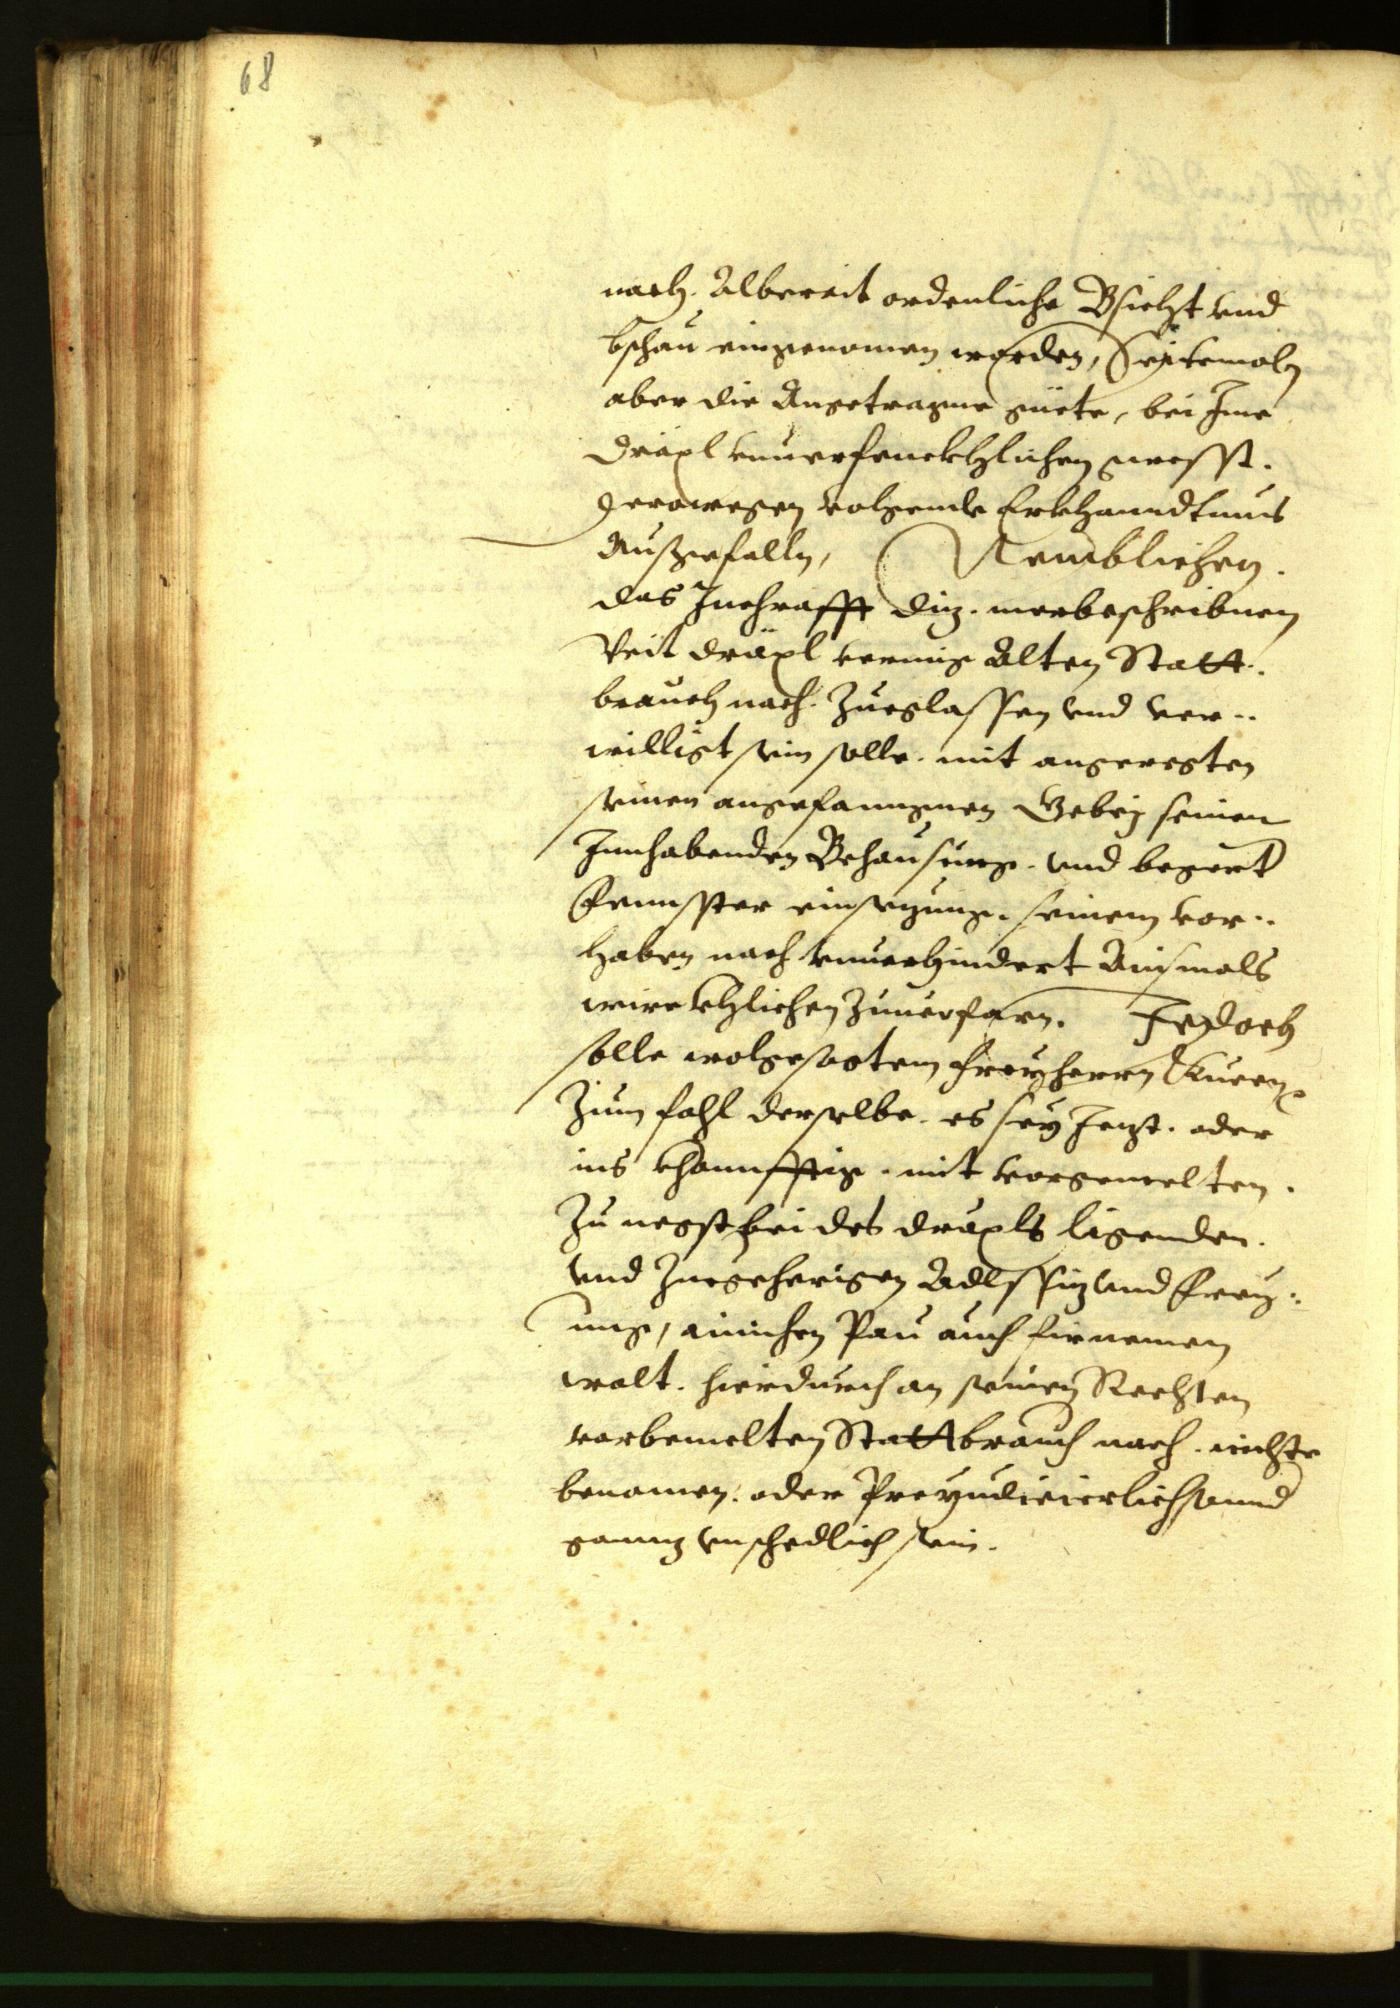 68
nach. Albereit ordenliche Bsicht vnd
bschau eingenomen worden, Seitemaln
aber die Angetragne güete, bei Ime
dräxl vnuerfencklichen gwesst.
Derowegen volgende Erkhanndtnus
Ausgefalln, Nemblichen.
das Incrafft diz. merbeschribnen
Veit dräxl vermig Alten Statt.
brauch nach. Zuegelassen vnd ver..
willigt sein solle. mit angeregten
seinen angefanngnen Gebey seiner
Innhabenden Behausung. vnd begert
Fennster einsezung. seinem vor..
haben nach vnuerhindert Ainsmals
wirckhlichen Zuuerfarn. Jedoch
solle wolgesagtem Freyherrn Kueen
Zum fahl derselbe. es sey Jezt. oder
ins khonnfftig. mit vorgemelten.
Zu negst bei des dräxls ligenden.
vnd Zuegeherigen Adlssiz vnd Frey:
ung, ainichen Pau auch firnemen
wolt. hierdurch an seinen Rechten
vorbemelten Stattbrauch nach. nichts
benomen. oder Preyudicierlich sonnd
gannz vnschedlich sein.